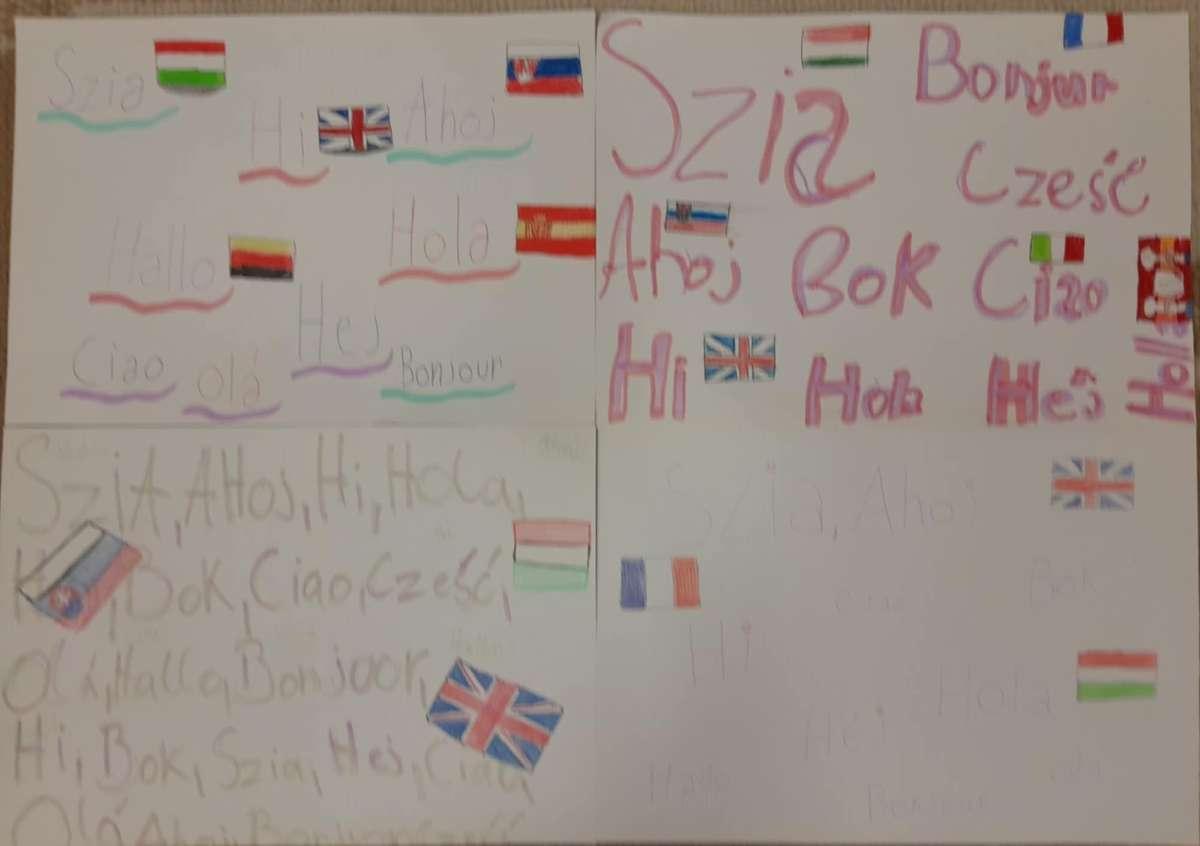 Szia
Hi
Ahoj
Hallo
Hola
Hej
Ciao
Olá
Bonjour
Szia
Bonjur
Cześć
Ahoj
Bok
Ciao
Hi
Hola
Hej
Holla
SziA, AHoj, Hi, Hola,
Bok, Ciao, Cześć,
Olá, Hallo, Bonjoor,
Hi, Bok, Szia, Hej, Ciao,
Olá Ahoj Bonjour Cześć
Szia, Ahoj
Ciao
Bok
Hi
Hola
Hej
Hallo
Bonjour